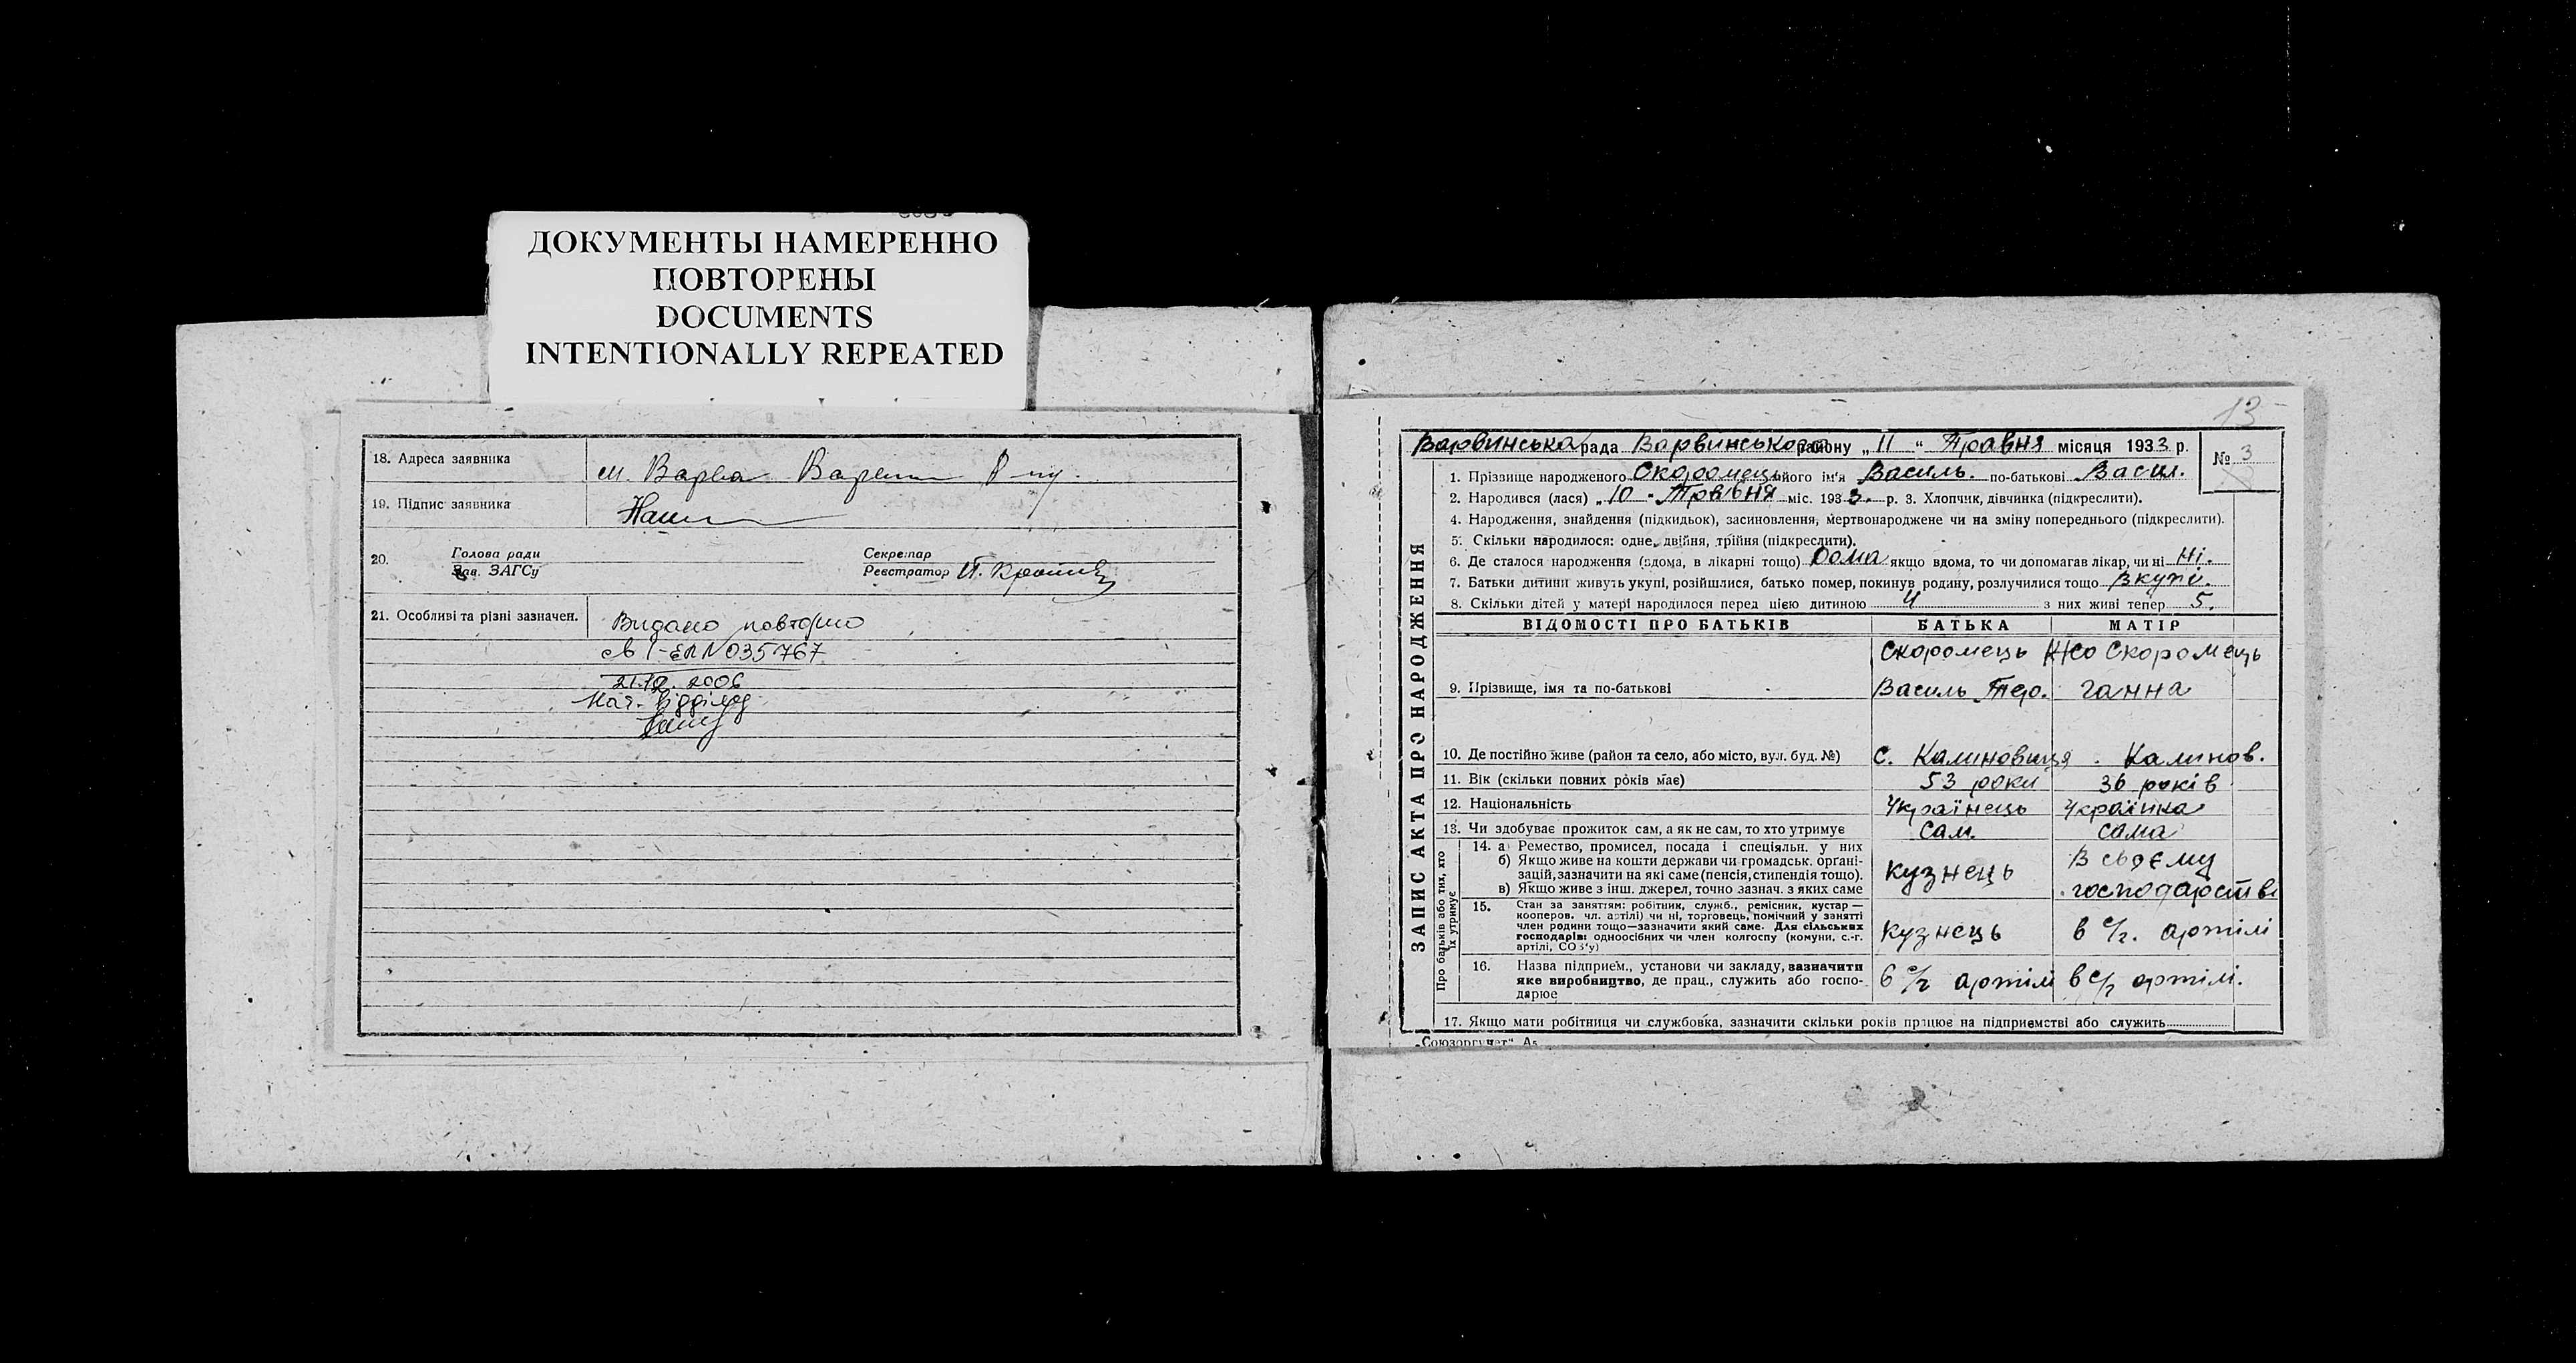 ДОКУМЕНТЫ НАМЕРЕННО
ПОВТОРЕНЫ
DOCUMENTS
INTENTIONALLY REPEATED
18. Адреса заявника м. Варва
19. Підпис заявника
20. Голова ради
Зав. ЗАГСу
Секретар
Реєстратор
21. Особливі та різні зазначен. Видано повторно
св I-ЕЛ N 035767
21.12.2006
Нач. відділу
13
Варвинська рада Варвинського району „ 11 “ Травня місяця 1933 р.
№ 3
1. Прізвище народженого Скоромець його ім'я Василь. по-батькові Васил.
2. Народився (лася) „ 10 “ Травня міс. 193 3. р. 3. Хлопчик, дівчинка (підкреслити).
4. Народження, знайдення (підкидьок), засиновлення, мертвонароджене чи на зміну попереднього (підкреслити).
5. Скільки народилося: одне, двійня, трійня (підкреслити).
6. Де сталося народження (вдома, в лікарні тощо) Дома якщо вдома, то чи допомагав лікар, чи ні Ні.
7. Батьки дитини живуть укупі, розійшлися, батько помер, покинув родину, розлучилися тощо Вкупі.
8. Скільки дітей у матері народилося перед цією дитиною 4 з них живі тепер 5.
ЗАПИС АКТА ПРО НАРОДЖЕННЯ
ВІДОМОСТІ ПРО БАТЬКІВ БАТЬКА МАТІР
Скоромець Скоромець
9. Прізвище, імя та по-батькові Василь ганна
10. Де постійно живе (район та село, або місто, вул. буд. №) С. Калиновиця Калинов.
11. Вік (скільки повних років має) 53 роки 36 років
12. Національність Українець Українка
13. Чи здобуває прожиток сам, а як не сам, то хто утримує сам. сама
Про батьків або тих, хто їх утримує
14. а) Ремество, промисел, посада і спеціяльн. у них
б) Якщо живе на кошти держави чи громадськ. орґані-
зацій, зазначити на які саме (пенсія, стипендія тощо).
в) Якщо живе з інш. джерел, точно зазнач. з яких саме
кузнець В своєму
господарстві
15. Стан за заняттям: робітник, служб., ремісник, кустар —
кооперов. чл. артілі) чи ні, торговець, помічний у занятті
член родини тощо—зазначити який саме. Для сільських
господарів: одноосібних чи член колгоспу (комуни, с.-г.
артілі, СОЗ'у)
кузнець в с/г. артілі
16. Назва підприєм., установи чи закладу, зазначити
яке виробництво, де прац., служить або госпо-
дарює
в с/г артілі в с/г артілі.
17. Якщо мати робітниця чи службовка, зазначити скільки років працює на підприємстві або служить